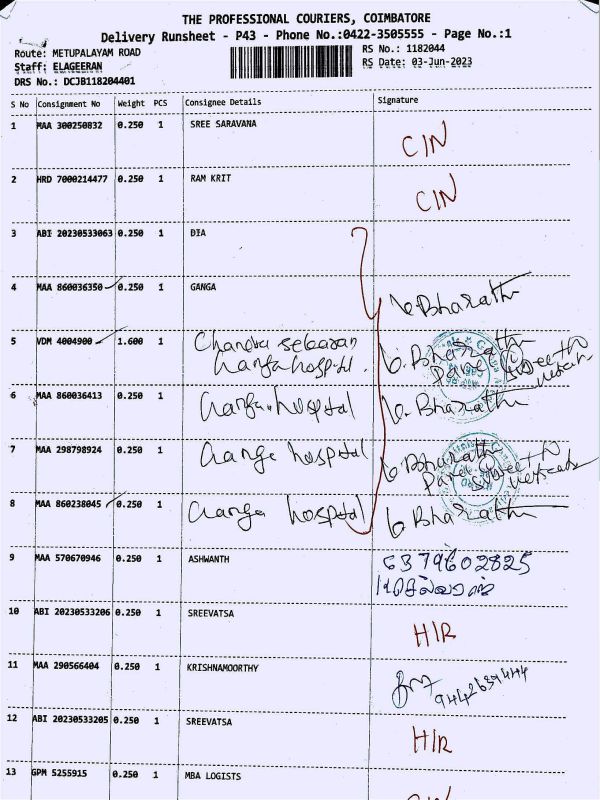 THE PROFESSIONAL COURIERS, COIMBATORE
Delivery Runsheet - P43 - Phone No.:0422-3505555 - Page No.:1
Route: METUPALAYAM ROAD
RS No.: 1182044
Staff: ELAGEERAN
RS Date: 03-Jun-2023
DRS No.: DCJB118204401
S No Consignment No Weight PCS Consignee Details Signature
1 MAA 300250832 0.250 1 SREE SARAVANA CIN
2 HRD 7000214477 0.250 1 RAM KRIT CIN
3 ABI 20230533063 0.250 1 DIA
4 MAA 860036350 0.250 1 GANGA G.Bharathi
5 VDM 4004900 1.600 1 Chandra hospital G.Bharathi
6 MAA 860036413 0.250 1 Ganga hospital G.Bharathi
7 MAA 298798924 0.250 1 Ganga hospital G.Bharathi
8 MAA 860238045 0.250 1 Ganga hospital G.Bharathi
9 MAA 570670946 0.250 1 ASHWANTH 6379602825
10 ABI 20230533206 0.250 1 SREEVATSA HIR
11 MAA 290566404 0.250 1 KRISHNAMOORTHY
12 ABI 20230533205 0.250 1 SREEVATSA HIR
13 GPM 5255915 0.250 1 MBA LOGISTS